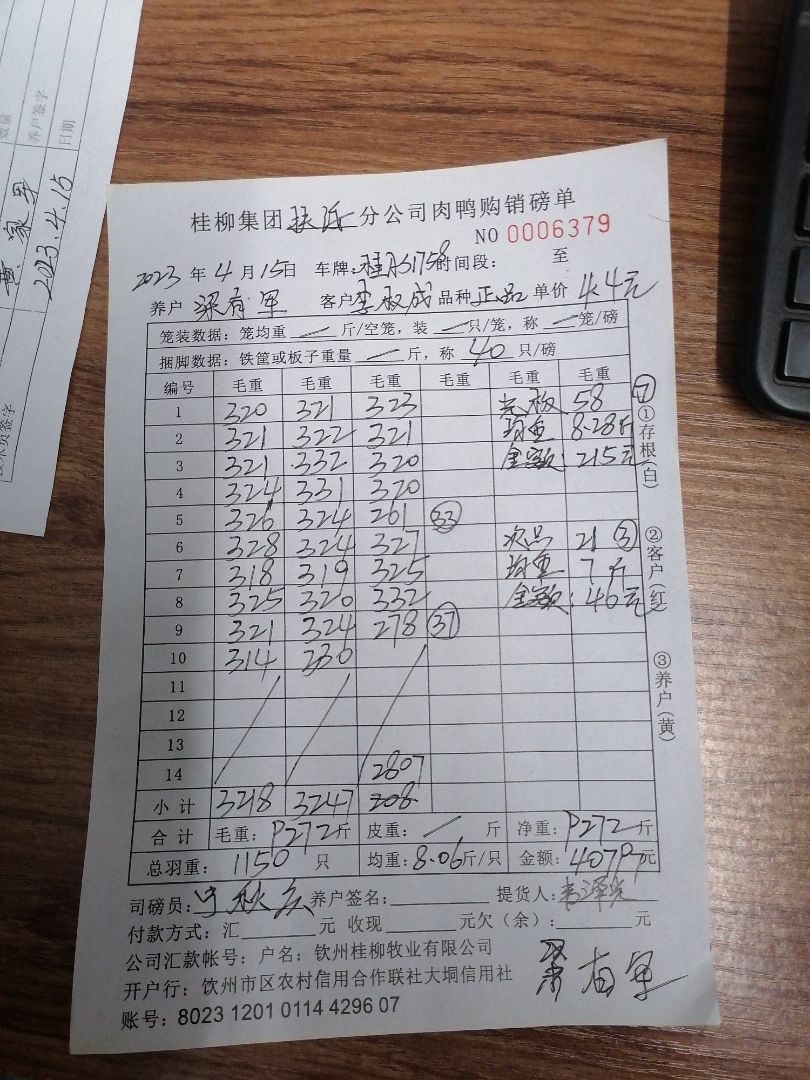 数量
养户签字
日期
2023.4.15
技术员签字
桂柳集团 分公司肉鸭购销磅单
NO 0006379
2023年4月15日 车牌: 时间段: 至
养户 梁有军 客户 李权成 品种 正品 单价 4.4元
笼装数据:笼均重 / 斤/空笼,装 / 只/笼,称 / 笼/磅
捆脚数据:铁筐或板子重量 / 斤,称 40 只/磅
编号 毛重 毛重 毛重 毛重 毛重 毛重
1 320 321 323 光板 58 ⑦
2 321 322 321 均重 8.28斤
3 321 332 320 金额: 215元
4 324 331 320
5 326 324 261 ㉝
6 328 324 327 次品 21 ③
7 318 319 325 均重 7斤
8 325 320 332 金额: 40元
9 321 324 278 ㊲
10 314 330
11
12
13
14 2807
小计 3218 3247
合计 毛重:9272斤 皮重: / 斤 净重:9272斤
总羽重: 1150 只 均重:8.06斤/只 金额:40797元
①存根(白)
②客户(红)
③养户(黄)
司磅员: 养户签名: 提货人:
付款方式:汇 元 收现 元欠(余): 元
公司汇款帐号:户名:钦州桂柳牧业有限公司
开户行:钦州市区农村信用合作联社大垌信用社
账号:8023 1201 0114 4296 07
梁有军